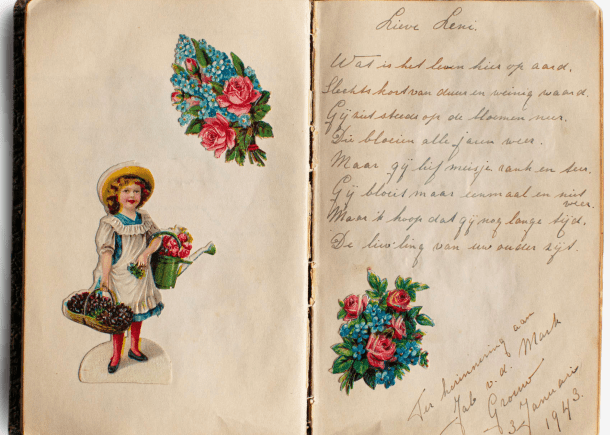 Lieve Leni.
Wat is het leven hier op aard,
Slechts kort van duur en weinig waard.
Gij ziet steeds op de bloemen neer.
Die bloeien alle jaren weer.
Maar gij lief meisje rank en teer.
Gij bloeit maar eenmaal en niet weer.
Maar 'k hoop dat gij nog lange tijd.
De liev'ling van uw ouders zijt.
Ter herinnering aan
Jab v. d. Mark
Grouw
3 Januari
1943.